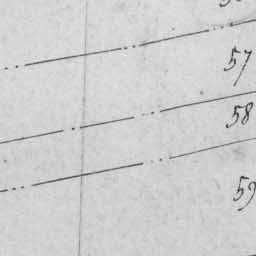 57
58
59